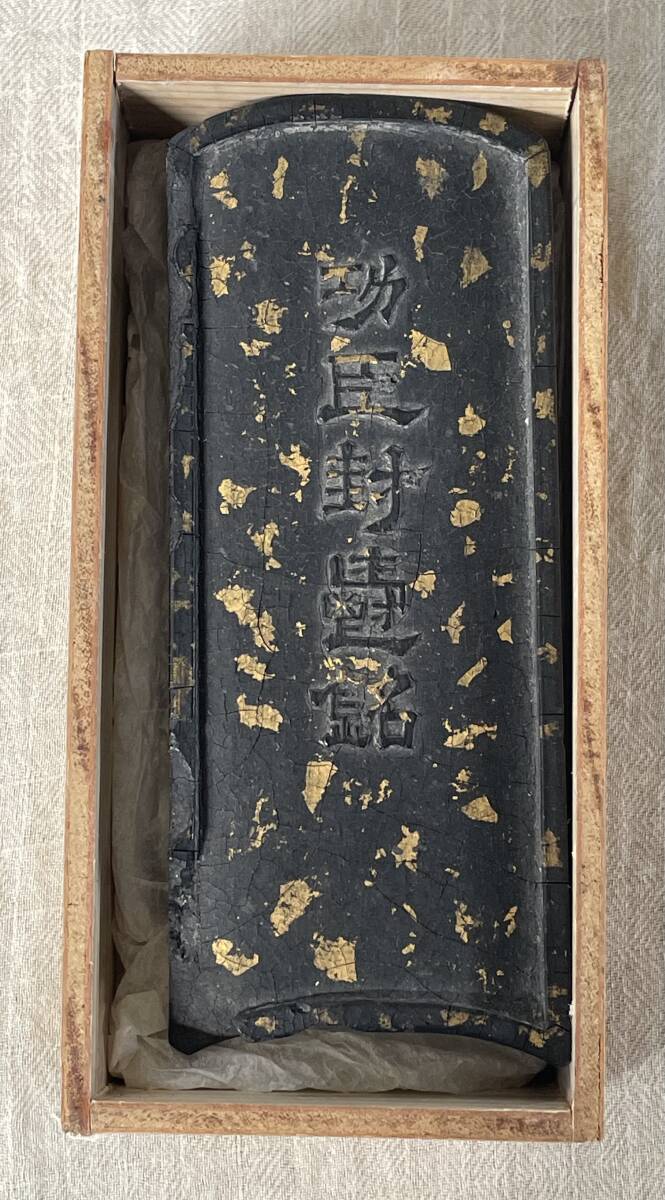 功臣封爵銘